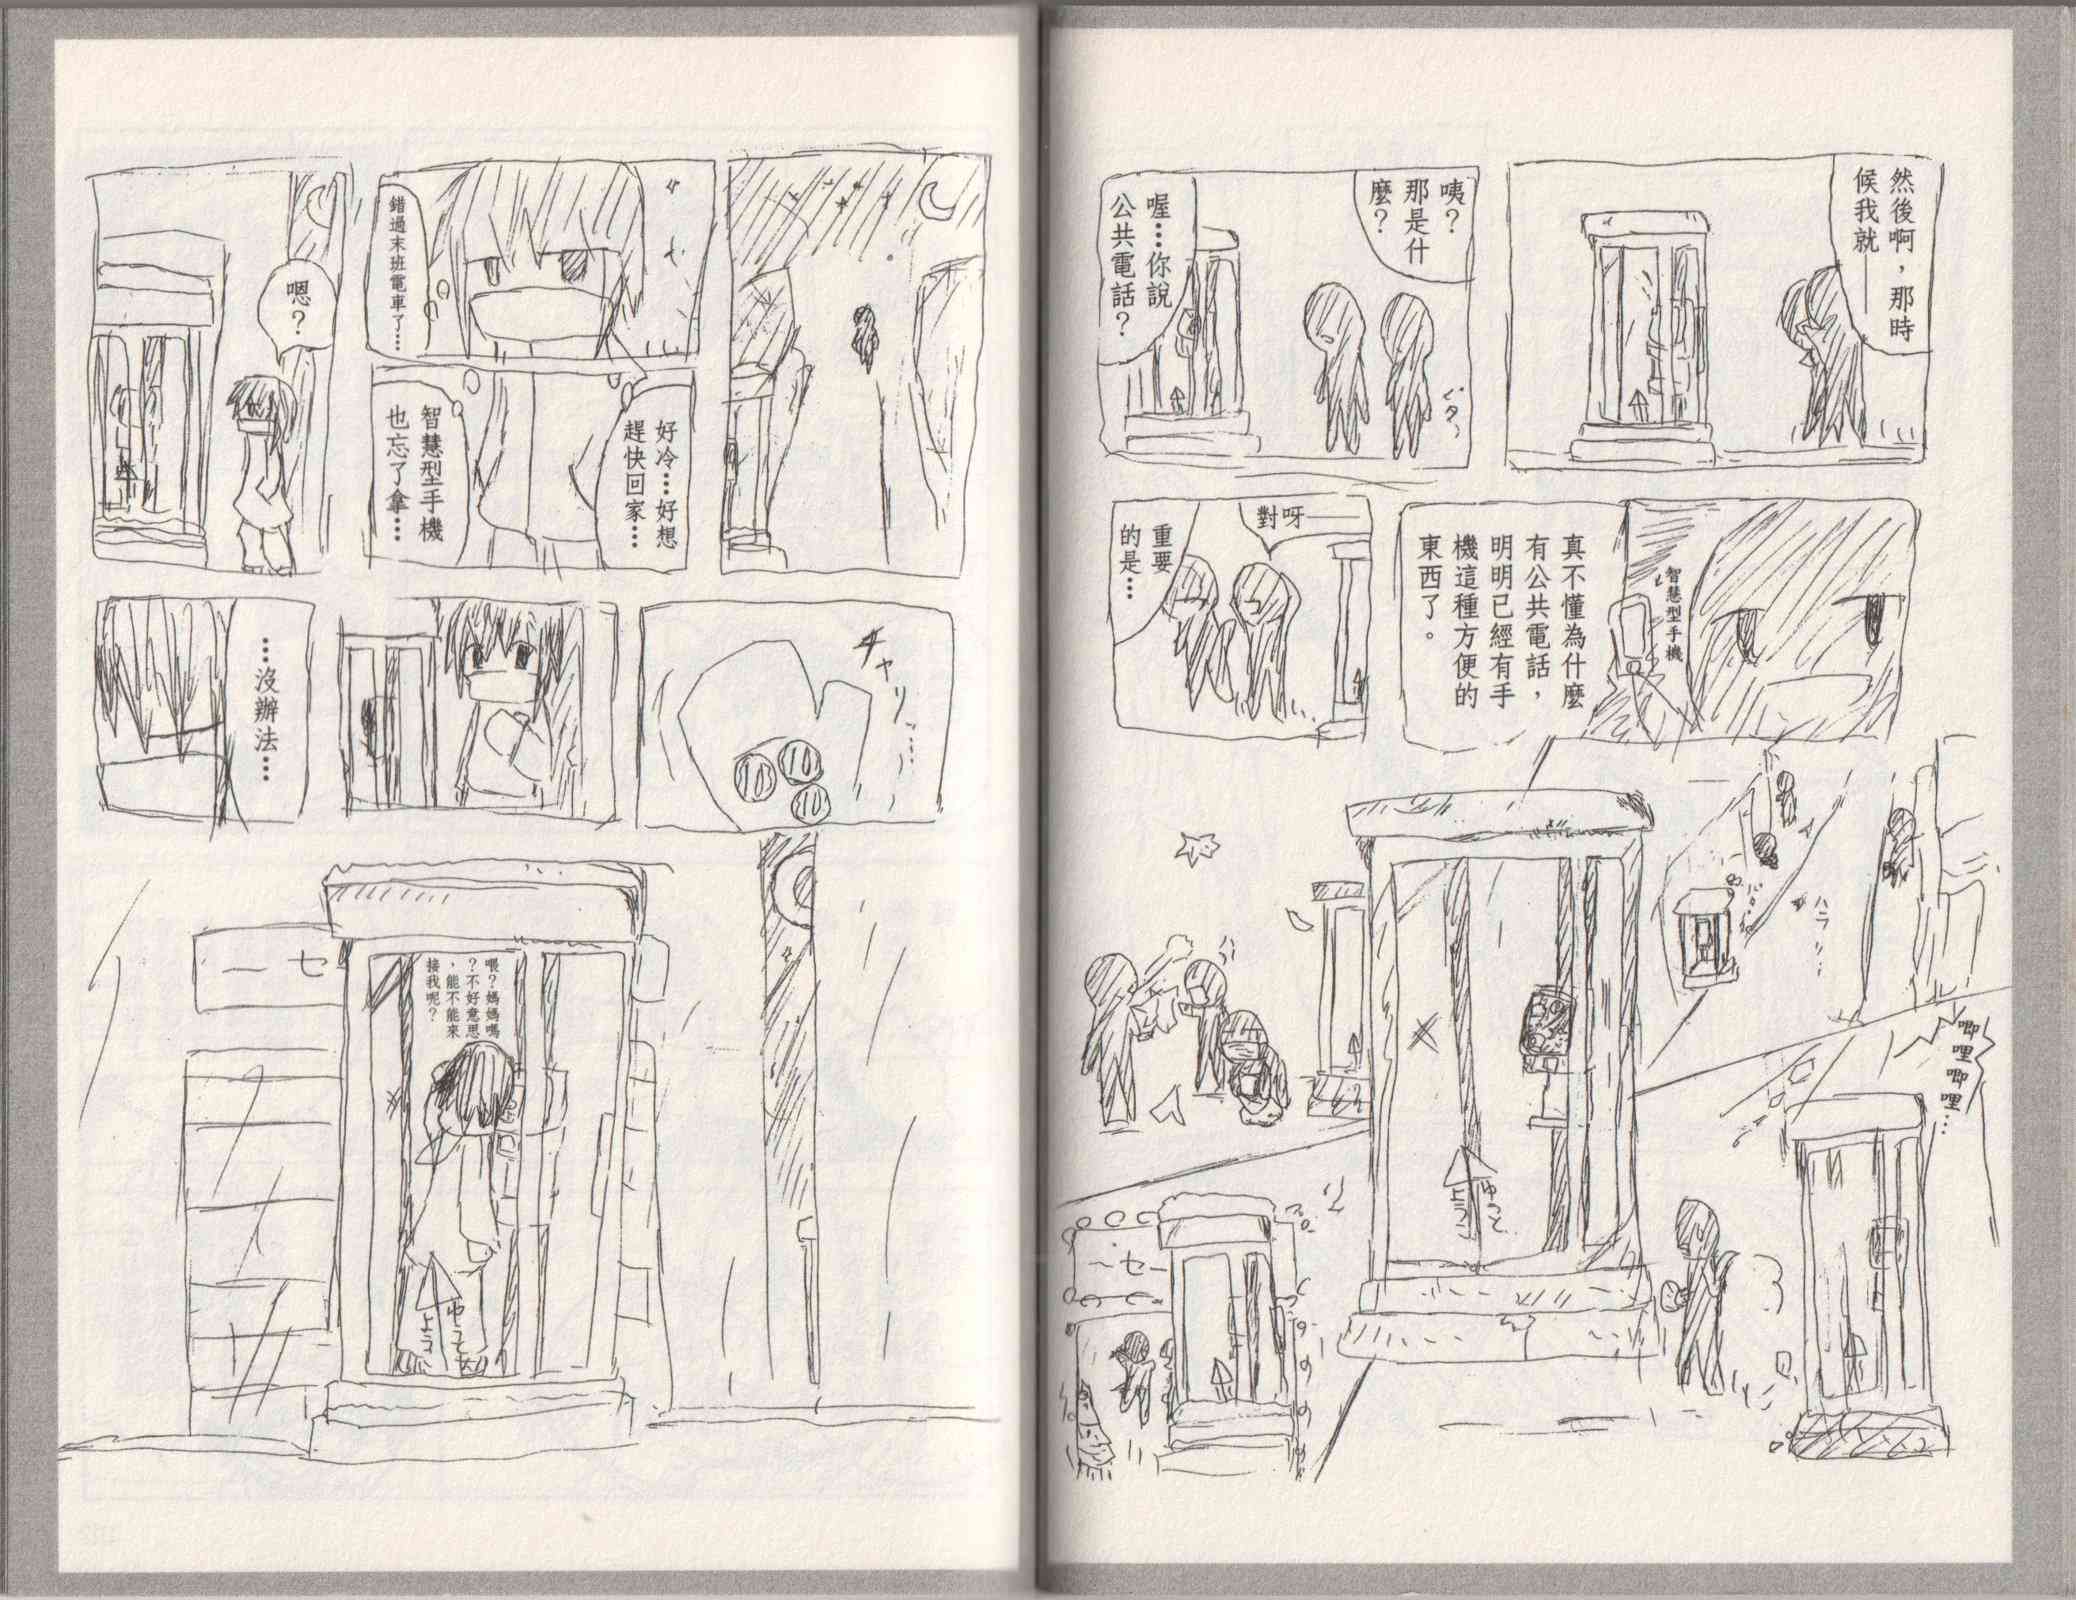 然後啊，那時
候我就——
咦？
那是什
麼？
喔…你說
公共電話？
ピタッ
智慧型手機
真不懂為什麼
有公共電話，
明明已經有手
機這種方便的
東西了。
對呀——
重要
的是…
唧哩唧哩…
ゆっくと
よう
セー
錯過末班電車了…
好冷…好想
趕快回家…
智慧型手機
也忘了拿…
嗯？
チャリッ…
10
10
10
…沒辦法…
喂？媽媽嗎
？不好意思
，能不能來
接我呢？
セー
ゆうそ
よう